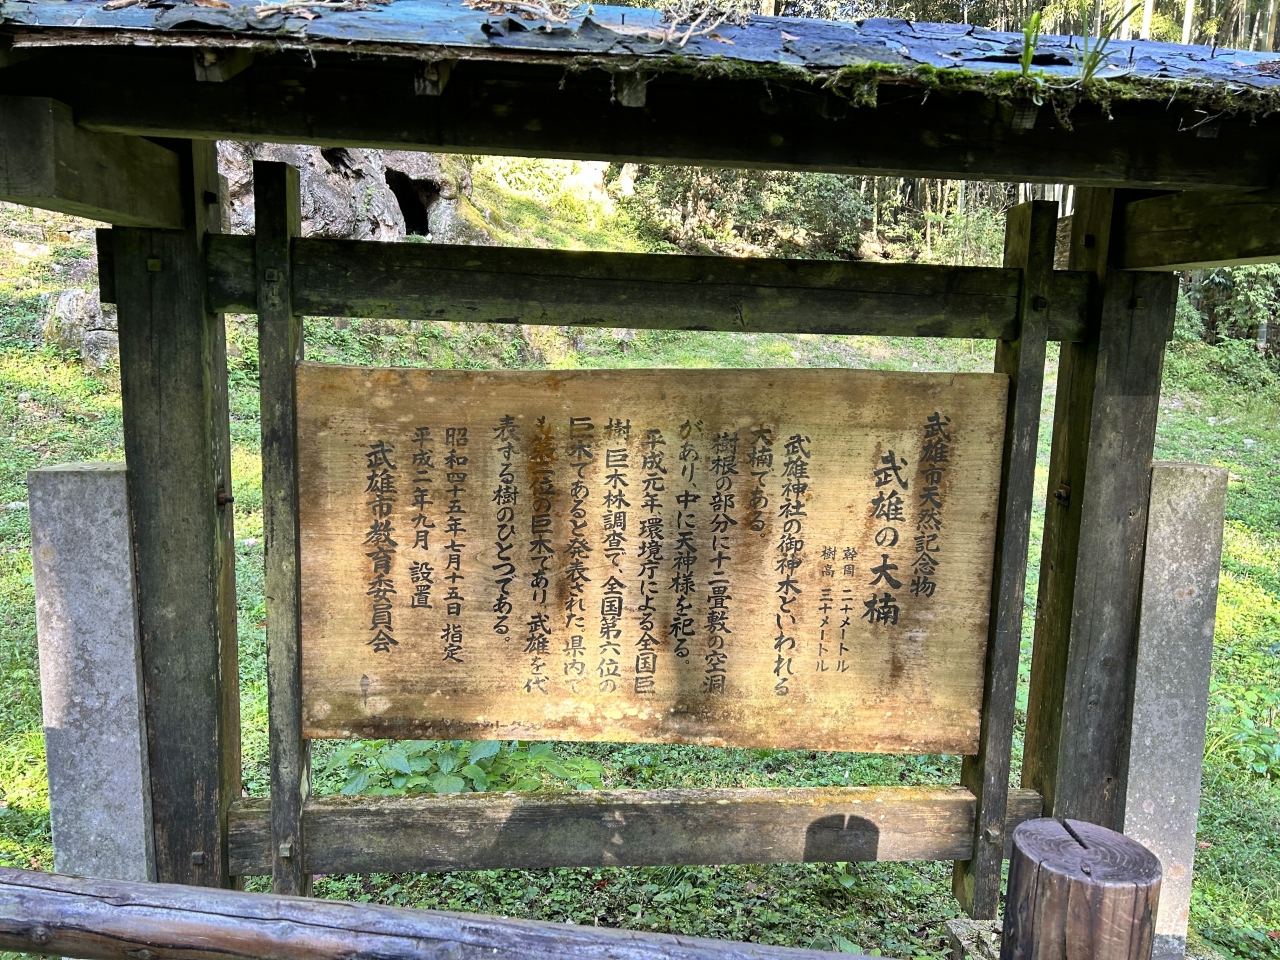 武雄市天然記念物
武雄の大楠
幹周 二十メートル
樹高 三十メートル
武雄神社の御神木といわれる
大楠である。
樹根の部分に十二畳敷の空洞
があり、中に天神様を祀る。
平成元年、環境庁による全国巨
樹巨木林調査で、全国第六位の
巨木であると発表された。県内で
も第二位の巨木であり、武雄を代
表する樹のひとつである。
昭和四十五年七月十五日 指定
平成二年九月 設置
武雄市教育委員会